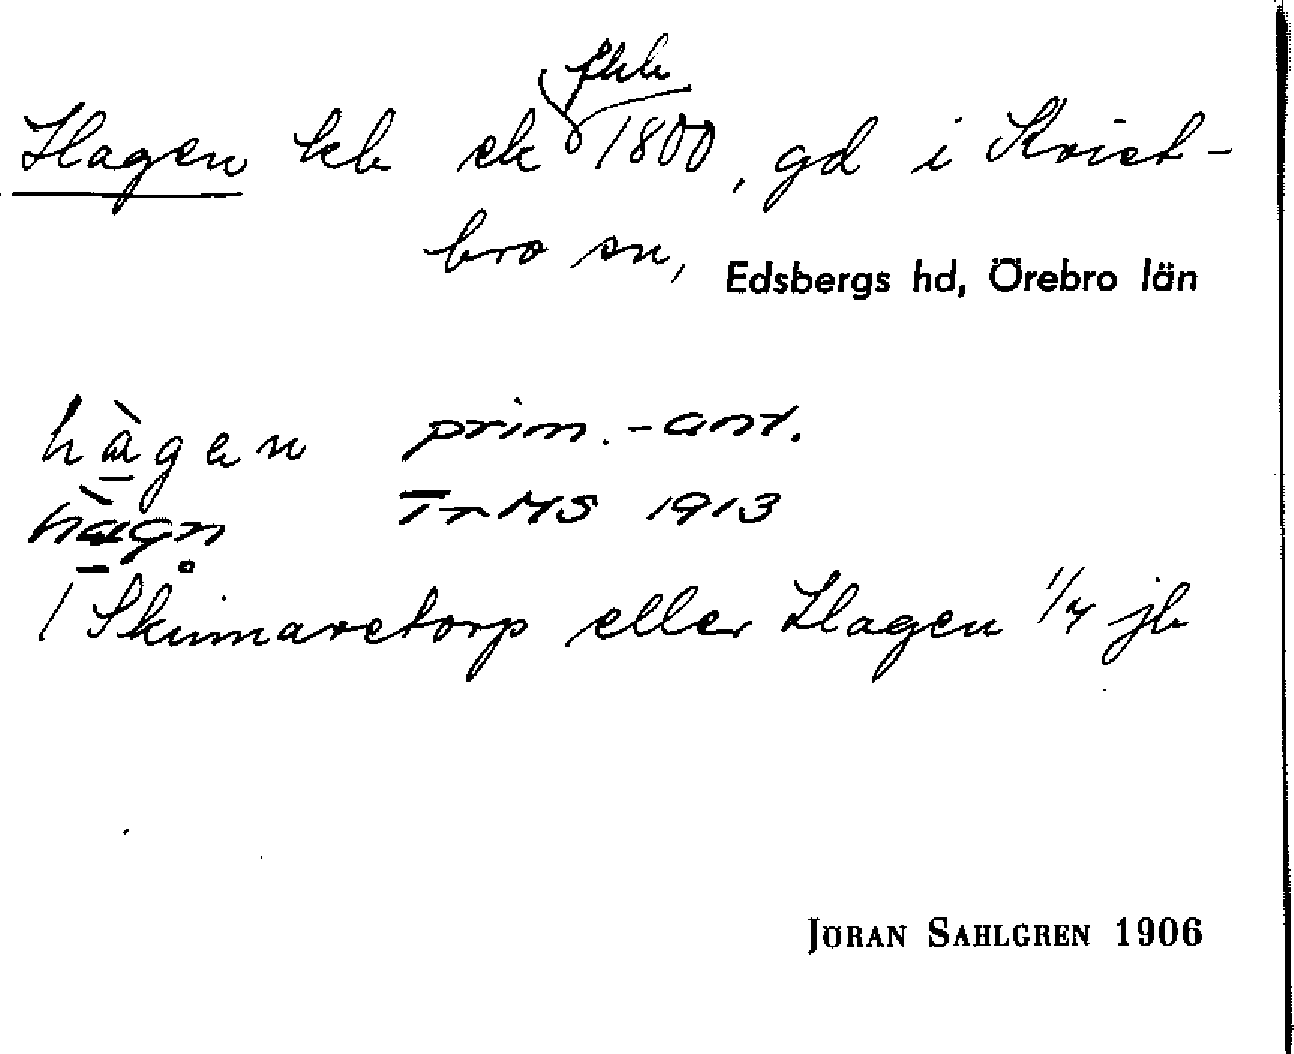 fkb
Hagen kb ek 1800, gd i Kvist-
bro sn, Edsbergs hd, Örebro län
hàgen prim.-ant.
hàgn̥ Tr MS 1913
1 Skumaretorp eller Hagen 1/4 jb
JÖRAN SAHLGREN 1906